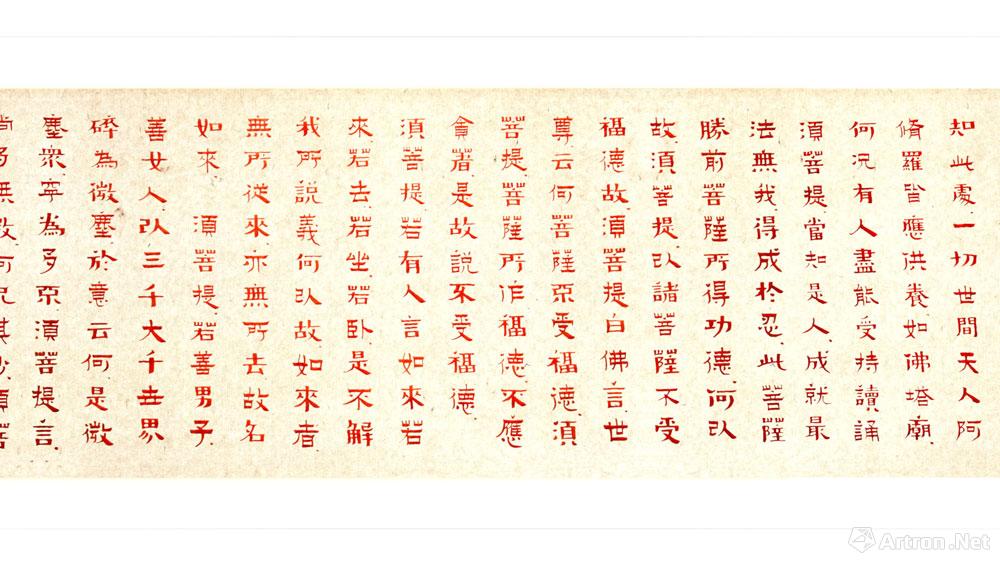 知此處一切世間天人阿
脩羅皆應供養如佛塔廟
何況有人盡能受持讀誦
須菩提當知是人成就最
法無我得成於忍此菩薩
勝前菩薩所得功德何以
故須菩提以諸菩薩不受
福德故須菩提白佛言世
尊云何菩薩不受福德須
菩提菩薩所作福德不應
貪著是故說不受福德
須菩提若有人言如來若
來若去若坐若卧是不解
我所說義何以故如來者
無所從來亦無所去故名
如來 須菩提若善男子
善女人以三千大千世界
碎為微塵於意云何是微
塵眾寧為多不須菩提言
尚多無數何況其沙須菩
Artron.Net